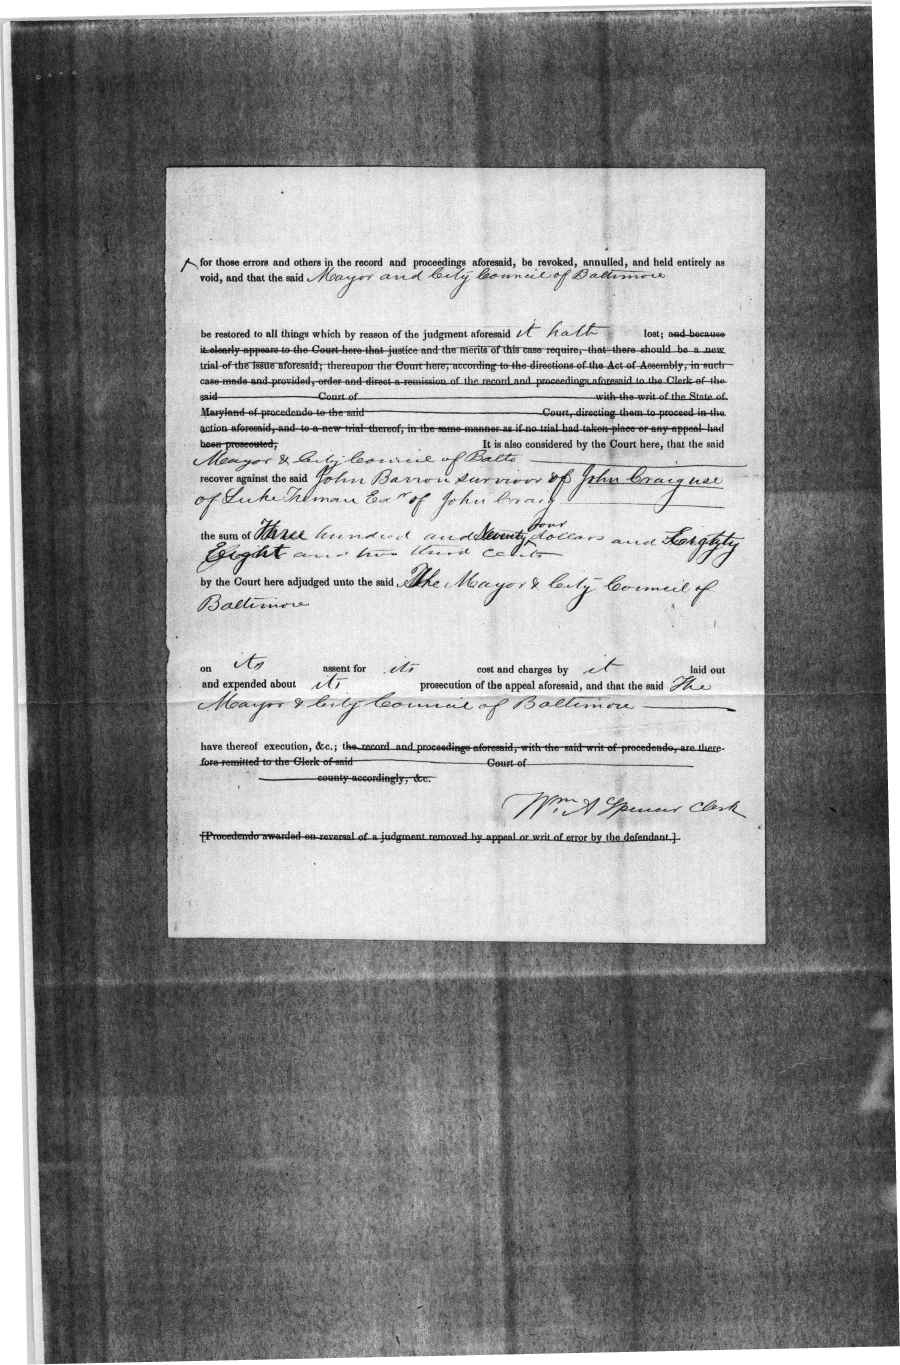 for those errors and others in the record and proceedings aforesaid, be revoked, annulled, and held entirely as
void, and that the said Mayor and City Council of Baltimore
be restored to all things which by reason of the judgment aforesaid it hath lost; and because
it clearly appears to the Court here that justice and the merits of this case require, that there should be a new
trial of the issue aforesaid; thereupon the Court here, according to the directions of the Act of Assembly, in such
case made and provided, order and direct a remission of the record and proceedings aforesaid to the Clerk of the
said Court of with the writ of the State of
Maryland of procedendo to the said Court, directing them to proceed in the
action aforesaid, and to a new trial thereof, in the same manner as if no trial had taken place or any appeal had
been prosecuted; It is also considered by the Court here, that the said
Mayor & City Council of Balto
recover against the said John Barron survivor of John Craig use
of Luke Tiernan Exr of John Craig
the sum of Three hundred and Seventy four dollars and
Eight and two third cents
by the Court here adjudged unto the said The Mayor & City Council of
Baltimore
on its assent for its cost and charges by it laid out
and expended about its prosecution of the appeal aforesaid, and that the said The
Mayor & City Council of Baltimore
have thereof execution, &c.; the record and proceedings aforesaid, with the said writ of procedendo, are there-
fore remitted to the Clerk of said Court of
county accordingly, &c.
Wm. A Spencer Clerk
[Procedendo awarded on reversal of a judgment removed by appeal or writ of error by the defendant.]